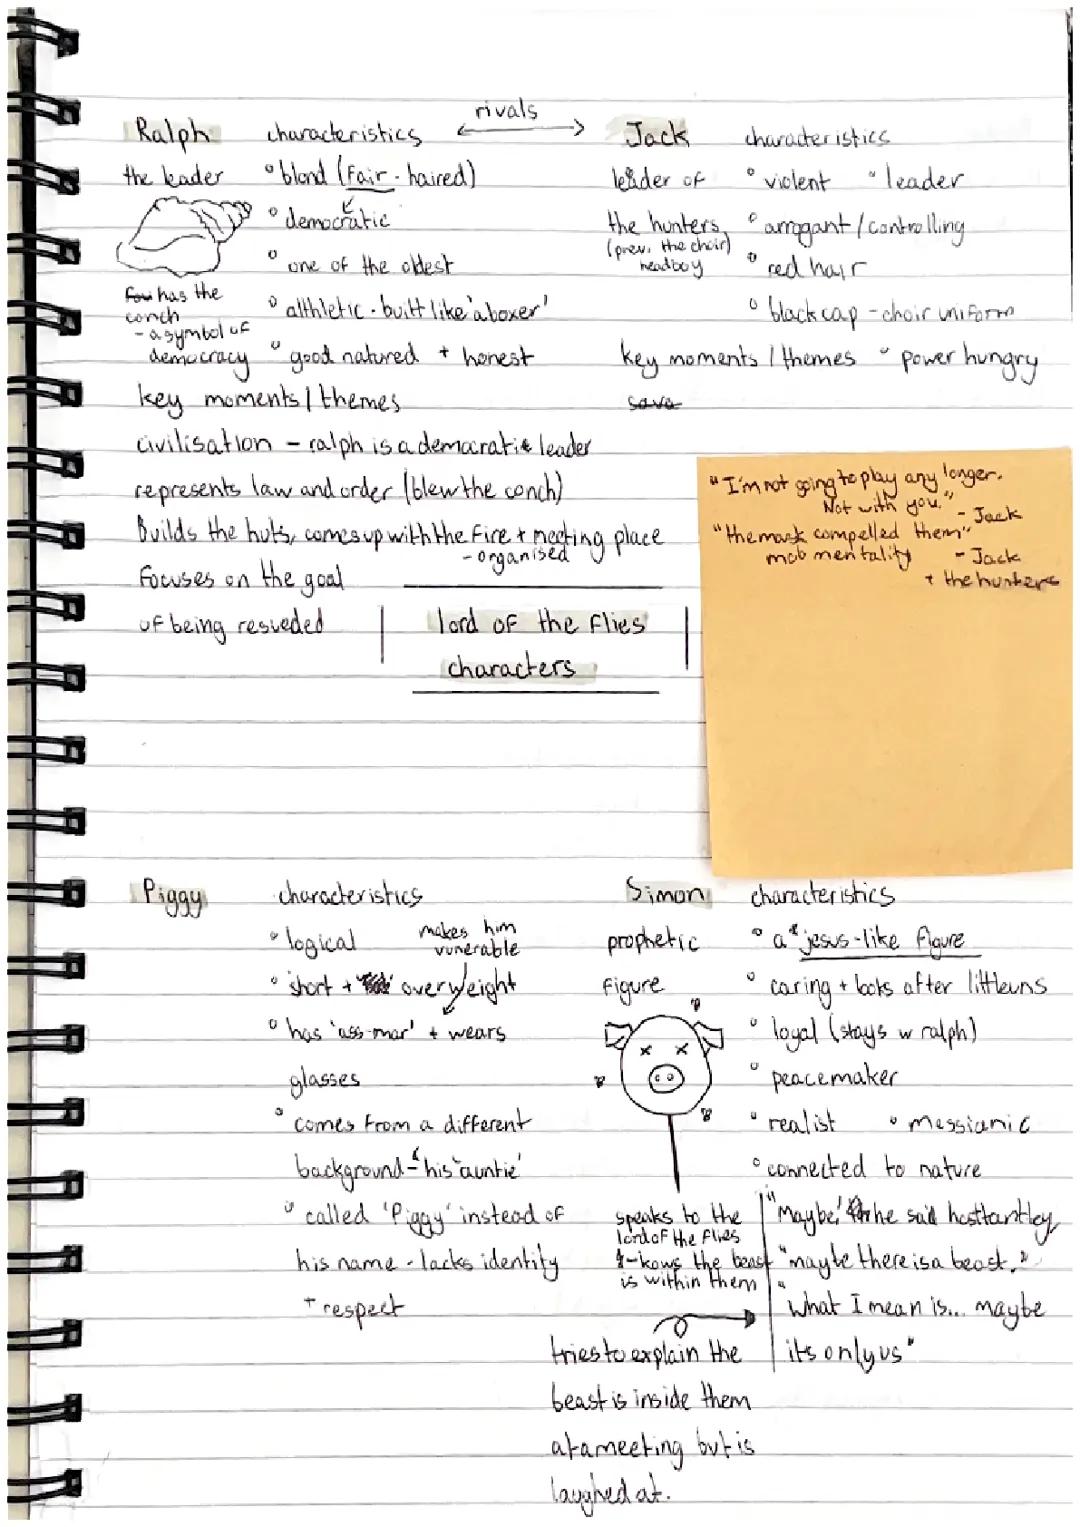 rivals
Ralph characteristics
the leader ° blond (Fair-haired)
° democratic
° one of the oldest
has the
conch
- a symbol of
democracy
° althletic - built like 'a boxer'
° good natured + honest
key moments / themes
civilisation - ralph is a democratic leader
represents law and order (blew the conch)
Builds the huts, comes up with the fire + meeting place
- organised
Focuses on the goal
of being resueded
Jack characteristics
leader of
the hunters
(prev. the choir)
headboy
° violent ° leader
° arrogant / controlling
° red hair
° black cap - choir uniform
key moments / themes ° power hungry
save
"I'm not going to play any longer.
Not with you." - Jack
"the mask compelled them"
mob mentality - Jack
+ the hunters
lord of the flies
characters
Piggy characteristics
° logical
makes him
vunerable
° short + overweight
° has 'ass-mar' + wears
glasses
° comes from a different
background - his 'auntie'
° called 'Piggy' instead of
his name - lacks identity
+ respect
Simon characteristics
prophetic
figure
° a jesus-like figure
° caring + looks after littleuns
° loyal (stays w ralph)
° peacemaker
° realist ° messianic
° connected to nature
speaks to the
lord of the flies
- kows the beast
is within them
"Maybe," he said hesitantley,
"maybe there is a beast."
"What I mean is... maybe
its only us"
tries to explain the
beast is inside them
at a meeting but is
laughed at.